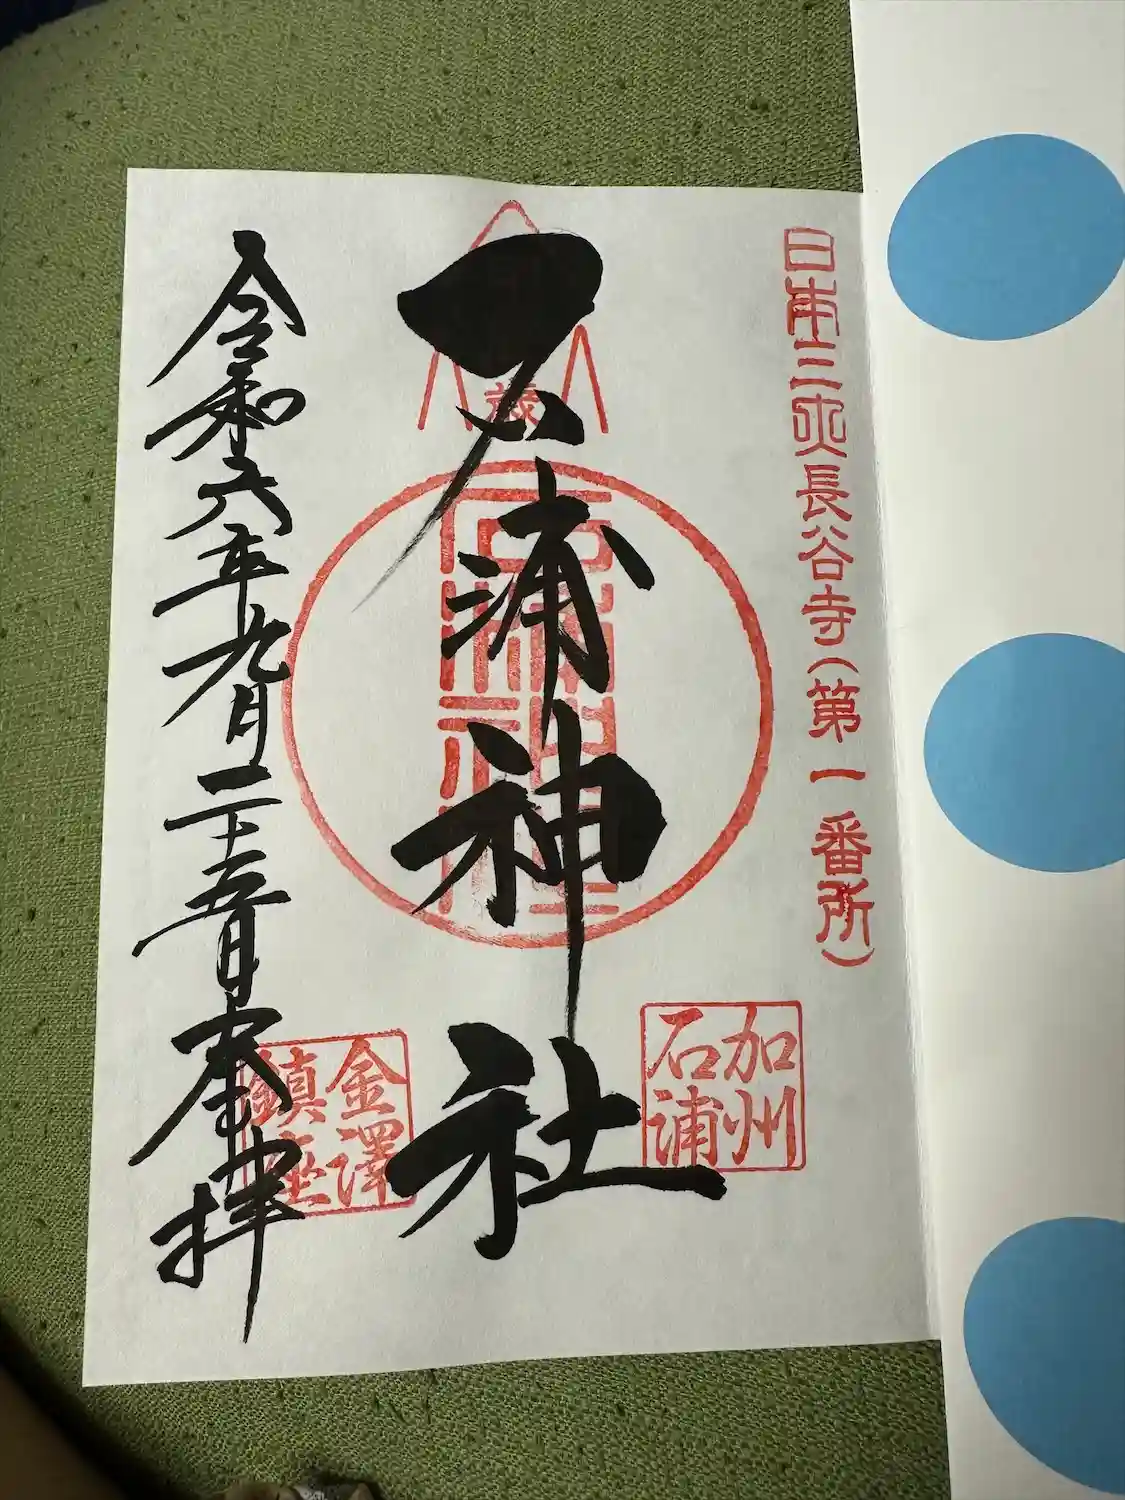 日本三处長谷寺（第一番所）
加州
石浦
歳
石浦神社
金澤
鎮座
令和六年九月二十五日奉拝